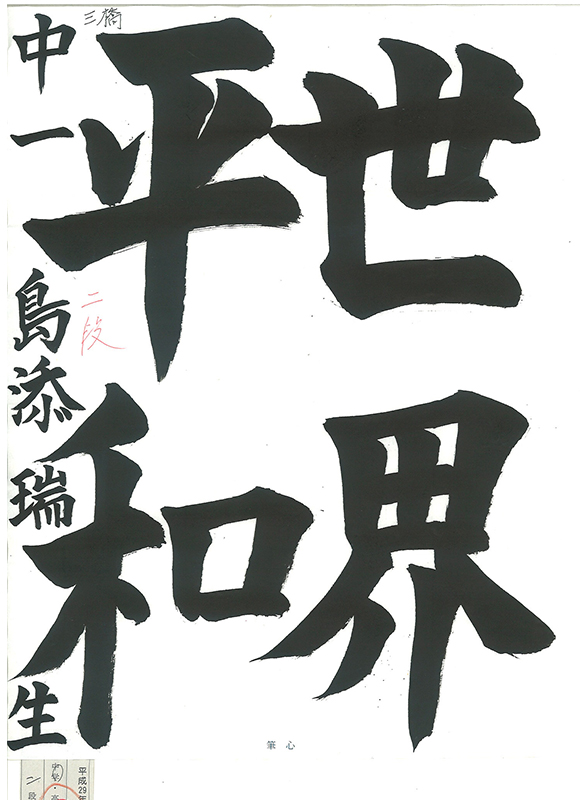 世界
平和
中一 島添瑞生
三橋
二段
筆心
平成29年
中学・高
二段